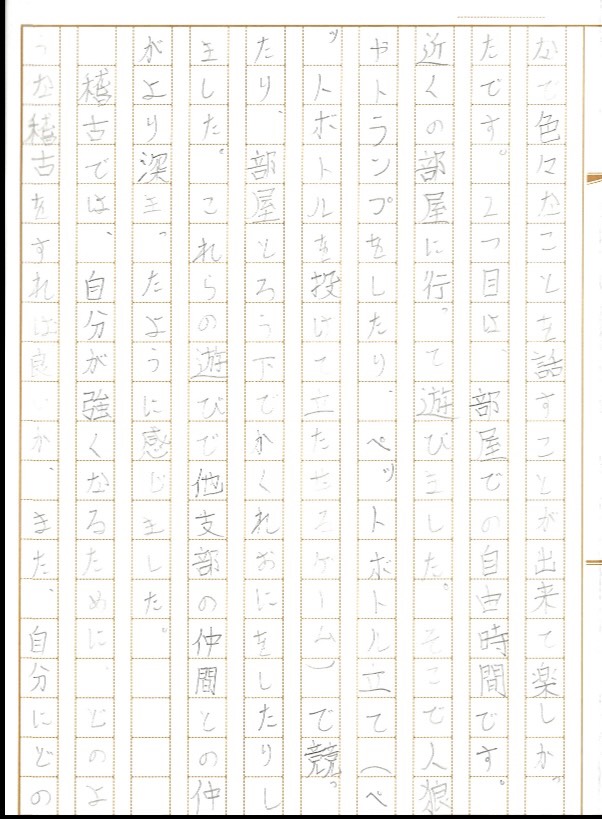 なで色々なことを話すことが出来て楽しかっ
たです。2つ目は、部屋での自由時間です。
近くの部屋に行って遊びました。そこで人狼
やトランプをしたり、ペットボトル立て（ペ
ットボトルを投げて立たせるゲーム）で競っ
たり、部屋とろう下でかくれおにをしたりし
ました。これらの遊びで他支部の仲間との仲
がより深まったように感じました。
稽古では、自分が強くなるために、どのよ
うな稽古をすれば良いか、また、自分にどの